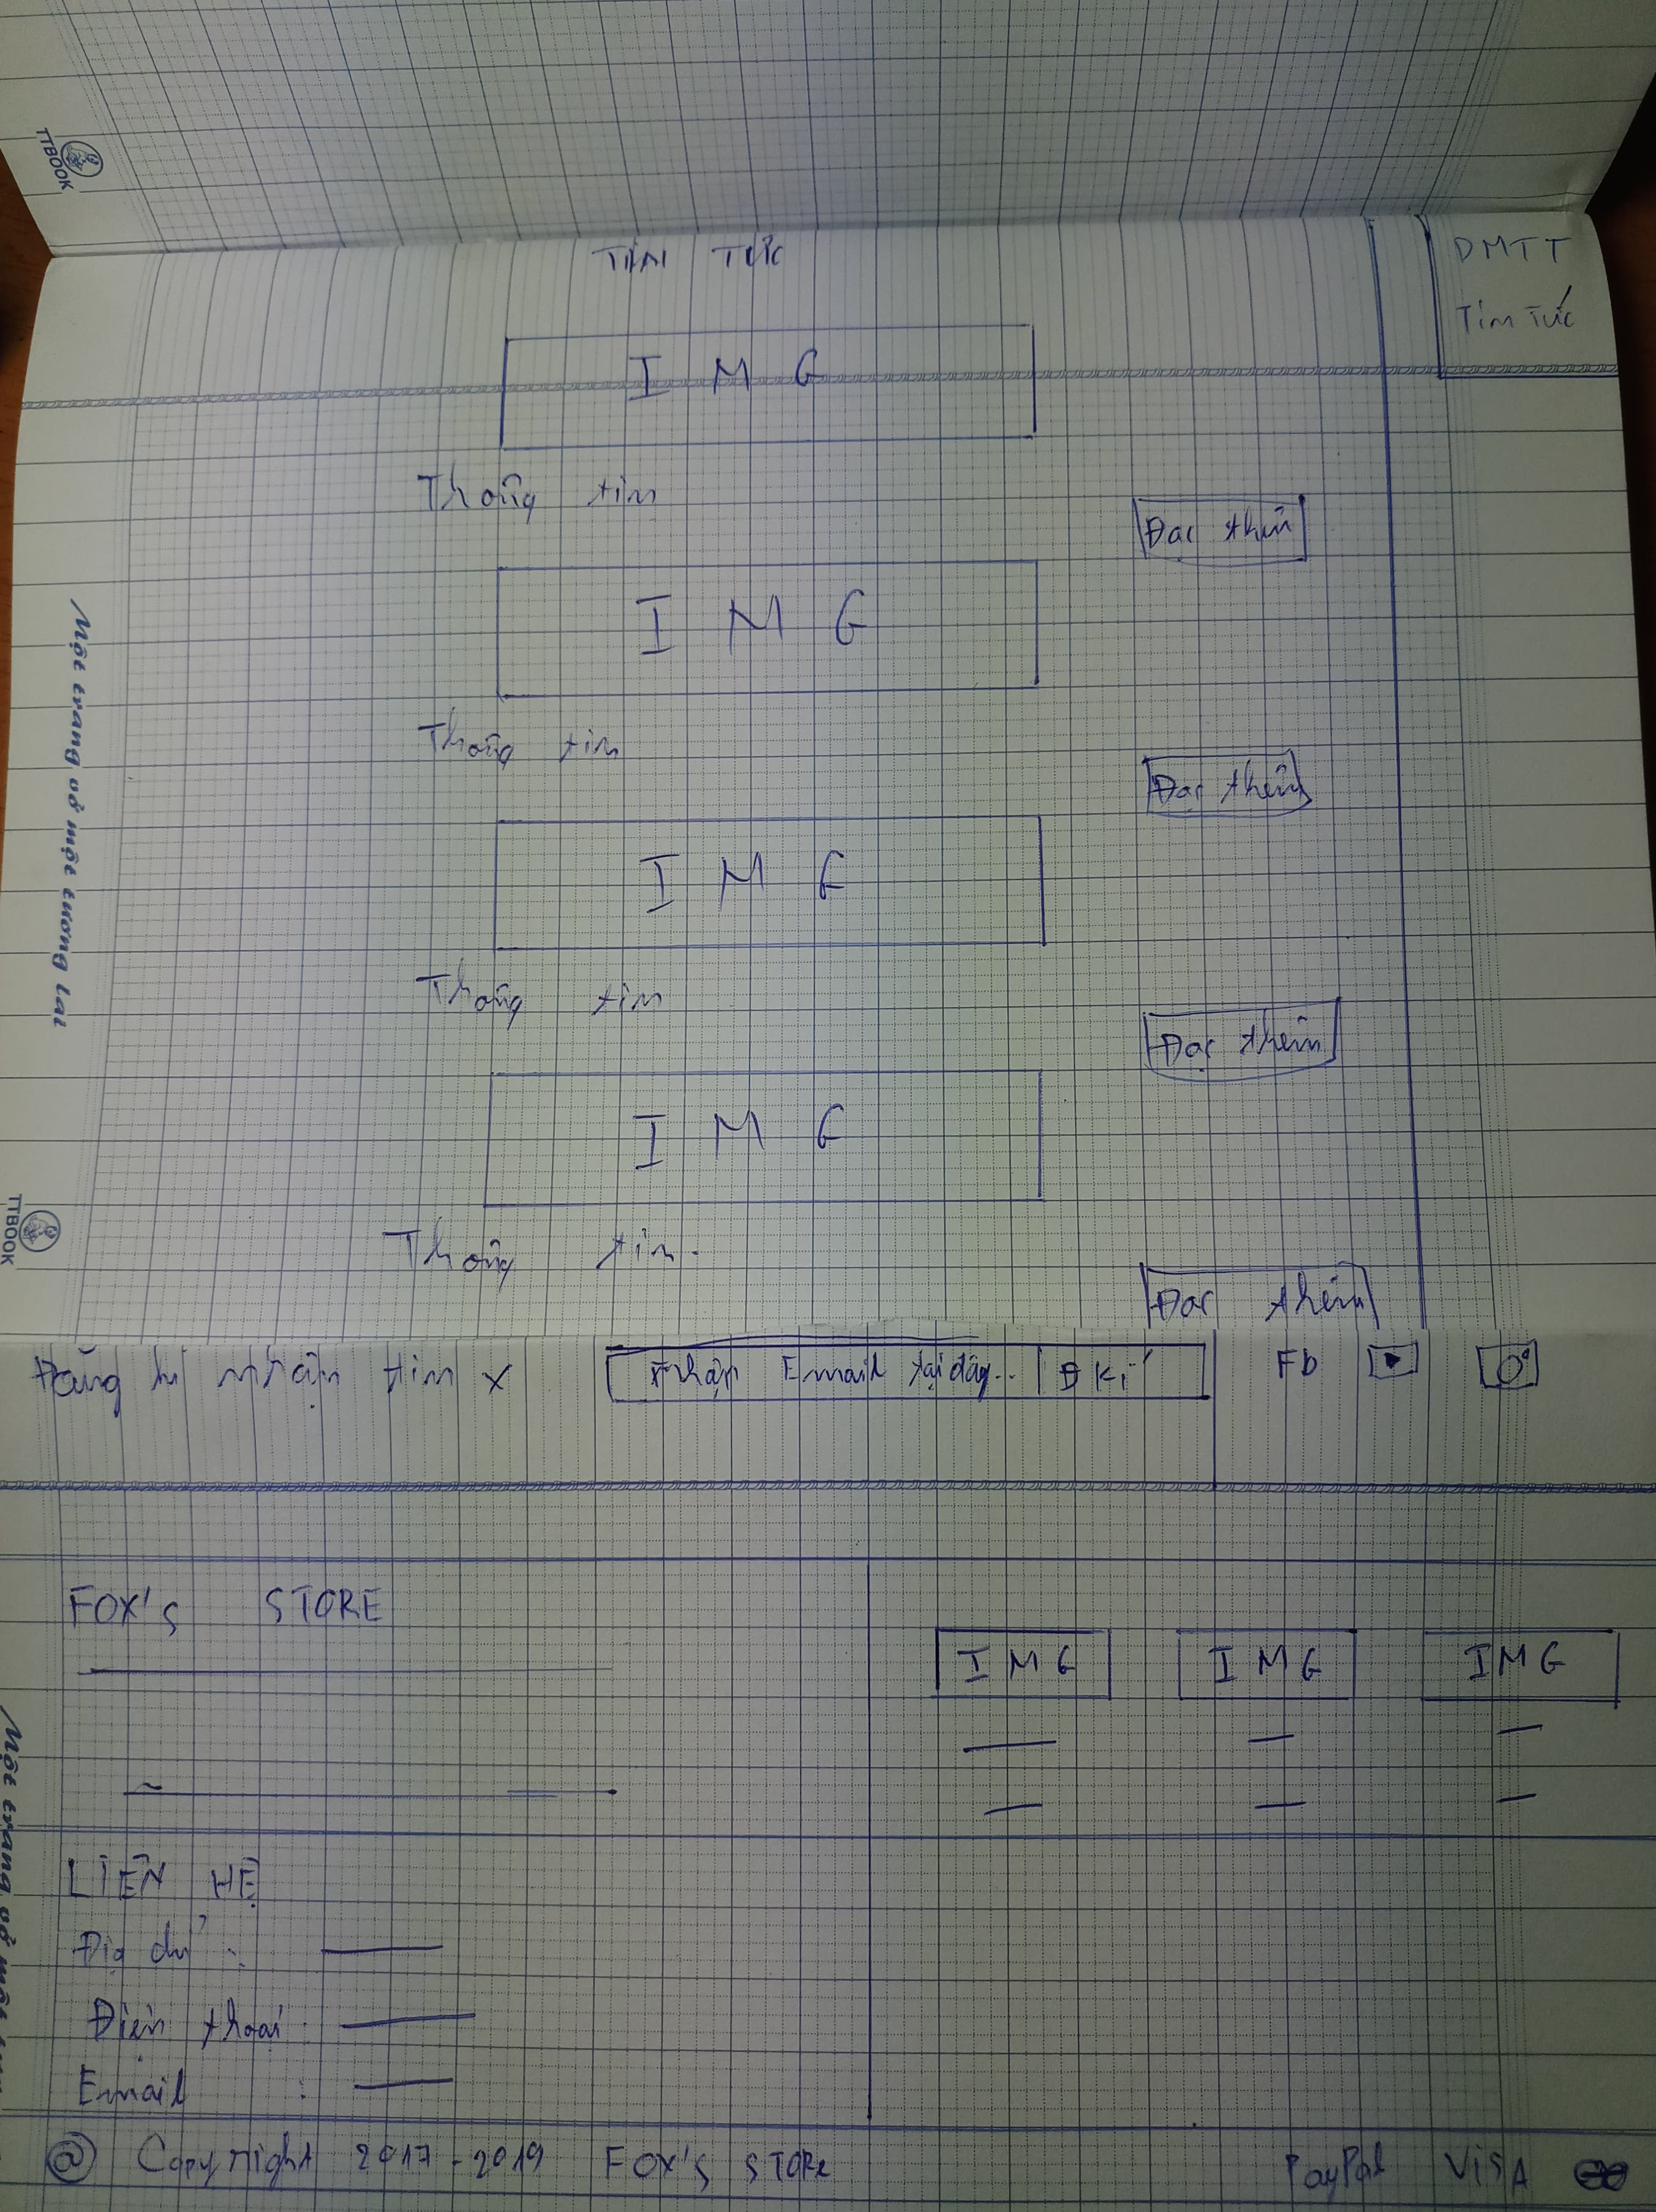 TTBOOK
TIN TỨC
DMTT
Tin Tức
IMG
Thông tin
Đọc thêm
IMG
Thông tin
Đọc thêm
IMG
Thông tin
Đọc thêm
IMG
Thông tin.
Đọc thêm
Một trang vở một tương lai
TTBOOK
Đăng kí nhận tin x
Nhập Email tại đây.. | Đ kí
FB
FOX'S STORE
IMG IMG IMG
LIÊN HỆ
Địa chỉ :
Điện thoại :
Email :
Một trang vở một
@ Copyright 2017 - 2019 FOX'S STORE PayPal VISA